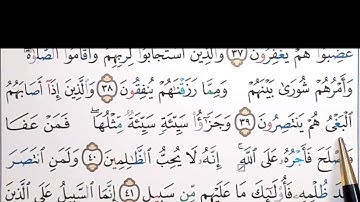 غَضِبُوا۟ هُمْ يَغْفِرُونَ ٣٧ وَٱلَّذِينَ ٱسْتَجَابُوا۟ لِرَبِّهِمْ وَأَقَامُوا۟ ٱلصَّلَوٰةَ
وَأَمْرُهُمْ شُورَىٰ بَيْنَهُمْ وَمِمَّا رَزَقْنَٰهُمْ يُنفِقُونَ ٣٨ وَٱلَّذِينَ إِذَآ أَصَابَهُمُ
ٱلْبَغْىُ هُمْ يَنتَصِرُونَ ٣٩ وَجَزَٰٓؤُا۟ سَيِّئَةٍ سَيِّئَةٌ مِّثْلُهَا ۖ فَمَنْ عَفَا
وَأَصْلَحَ فَأَجْرُهُۥ عَلَى ٱللَّهِ ۚ إِنَّهُۥ لَا يُحِبُّ ٱلظَّٰلِمِينَ ٤٠ وَلَمَنِ ٱنتَصَرَ
بَعْدَ ظُلْمِهِۦ فَأُو۟لَٰٓئِكَ مَا عَلَيْهِم مِّن سَبِيلٍ ٤١ إِنَّمَا ٱلسَّبِيلُ عَلَى ٱلَّذِينَ